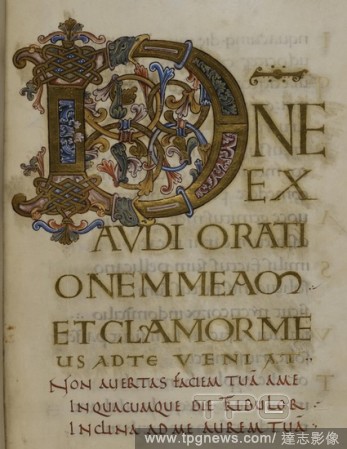 DNE
EX
AUDI ORATI
ONEM MEAM
ET CLAMOR ME
US AD TE VENIAT
NON avertas faciem tuā a me
IN quacumque die tribulor
INclina ad me aurem tuā
TPG
www.tpgnews.com / 達志影像